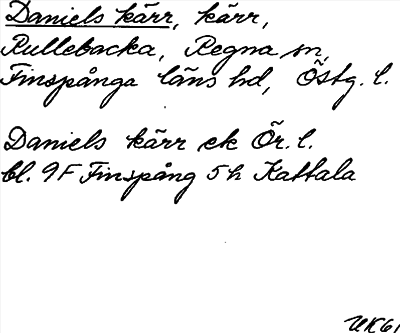 Daniels kärr, kärr,
Rullebacka, Regna sn,
Finspånga läns hd, Östg. l.
Daniels kärr ek Ör. l.
bl. 9F Finspång 5h Kattala
UK61